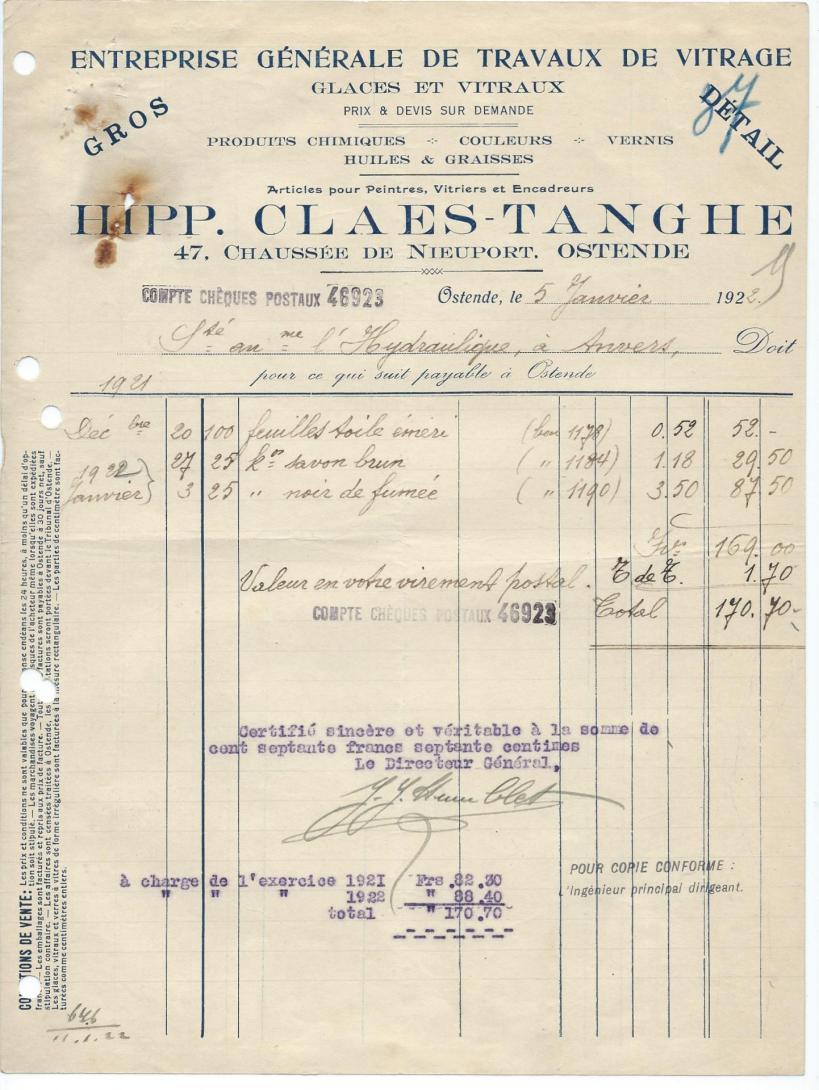 ENTREPRISE GÉNÉRALE DE TRAVAUX DE VITRAGE
GLACES ET VITRAUX
PRIX & DEVIS SUR DEMANDE
GROS
DÉTAIL
87
PRODUITS CHIMIQUES COULEURS VERNIS
HUILES & GRAISSES
Articles pour Peintres, Vitriers et Encadreurs
HIPP. CLAES-TANGHE
47, CHAUSSÉE DE NIEUPORT, OSTENDE
COMPTE CHÈQUES POSTAUX 46923
Ostende, le 5 Janvier 1922
Sté an me l'Hydraulique, à Anvers, Doit
1921 pour ce qui suit payable à Ostende
Déc bre 20 100 feuilles toile émeri (bon 1178) 0.52 52.-
1922 27 25 kos savon brun ( " 1184) 1.18 29.50
Janvier 3 25 " noir de fumée ( " 1190) 3.50 87.50
Frs 169.00
Valeur en votre virement postal. T de T. 1.70
COMPTE CHÈQUES POSTAUX 46923 Total 170.70-
Certifié sincère et véritable à la somme de
cent septante francs septante centimes
Le Directeur Général,
à charge de l'exercice 1921 Frs 82.30
" " " 1922 " 88.40
total " 170.70
POUR COPIE CONFORME :
L'Ingénieur principal dirigeant.
DE VENTE: Les prix et conditions ne sont valables que pour endéans les 24 heures, à moins qu'un délai d'op-
tion soit stipulé. — Les marchandises voyagent de l'acheteur même lorsqu'elles sont expédiées
— Les emballages sont facturés et repris aux prix de facture. — factures sont payables à Ostende à 30 jours net, sauf
stipulation contraire. — Les affaires sont censées traitées à Ostende, les seront portées devant le Tribunal d'Ostende. —
Les glaces, vitraux et verres à vitres de forme irrégulière sont facturées à la mesure rectangulaire. — Les parties de centimètre sont fac-
turées comme centimètres entiers.
646
11.1.22